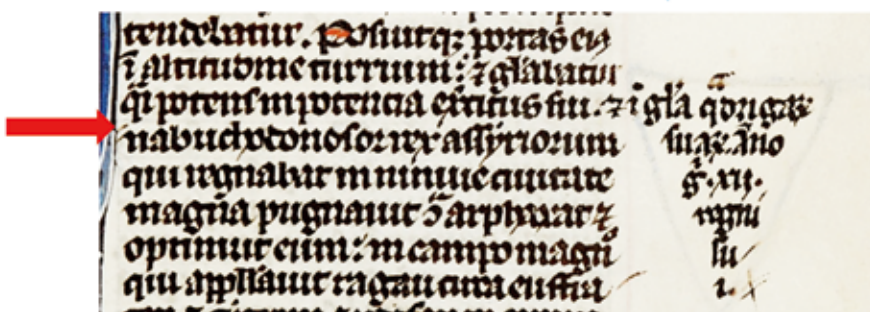 tendebatur. Posuitqꝫ portas eiꝰ
ī altitudine turrium: ⁊ gl̄abatur
q̄i potens in potencia ex̄citus sui. ⁊ ī gl̄a q̄drigaꝝ
nabuchodonosor rex assyriorum suaꝝ. āno
qui regnabat in niniue ciuitate g̊ .xii.
magna pugnauit ↄ̄ arphaxat ⁊ regni
optinuit eum: in campo magn̊ su
qui app̄llatur ragau circa eufra i.